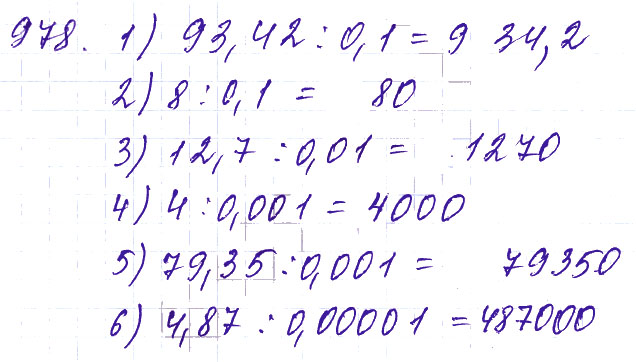 978. 1) 93,42 : 0,1 = 934,2
2) 8 : 0,1 = 80
3) 12,7 : 0,01 = 1270
4) 4 : 0,001 = 4000
5) 79,35 : 0,001 = 79350
6) 4,87 : 0,00001 = 487000